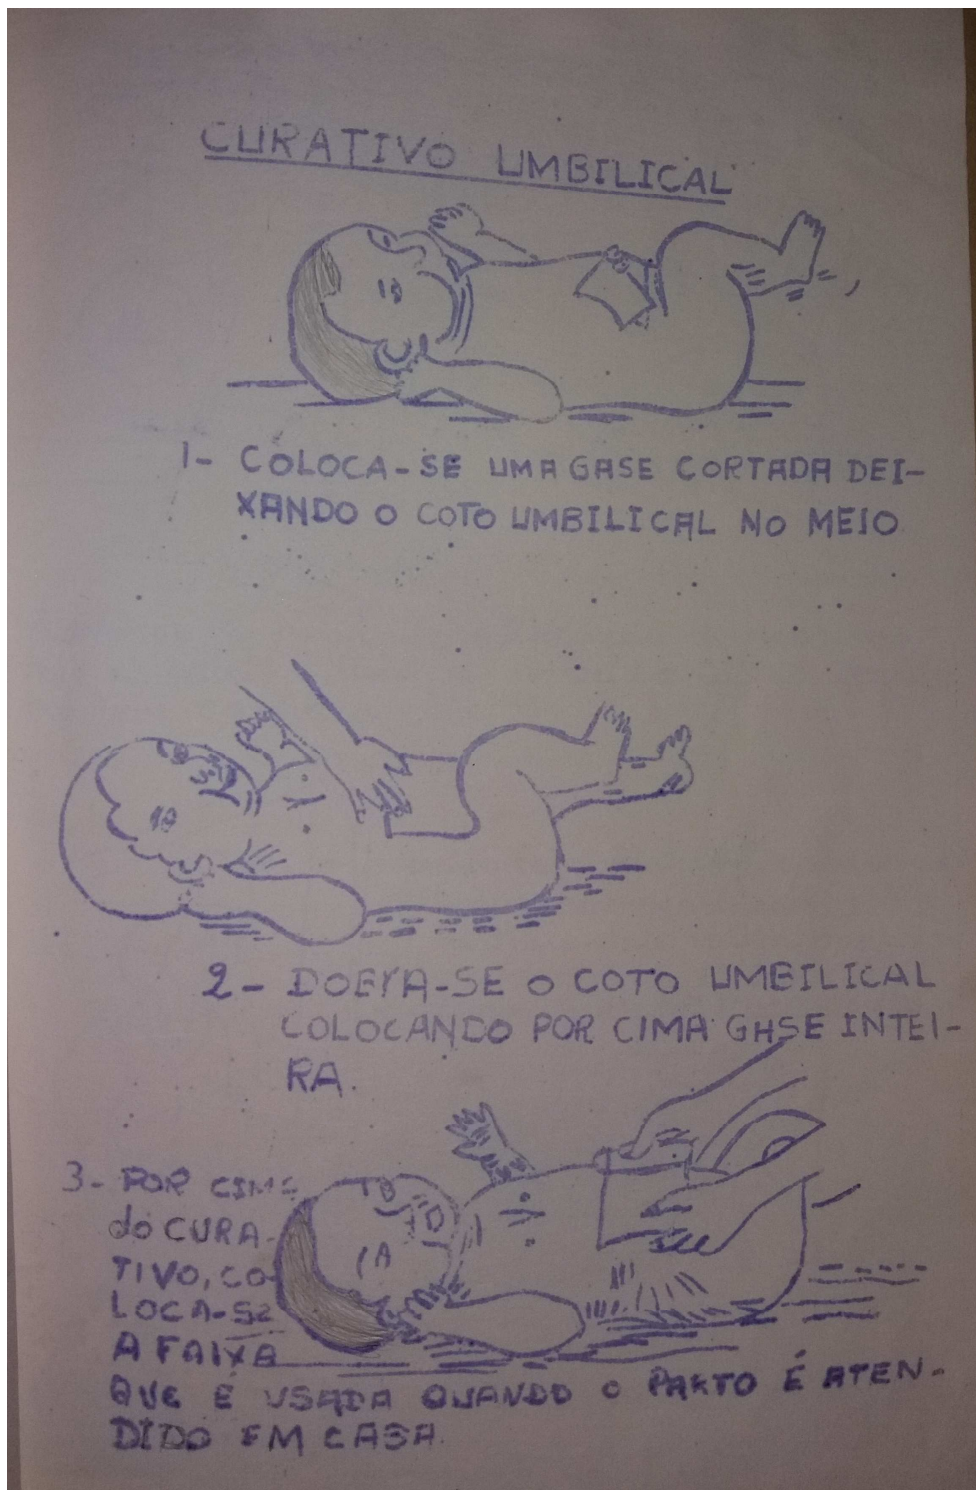 CURATIVO UMBILICAL
1- COLOCA-SE UMA GASE CORTADA DEI-
XANDO O COTO UMBILICAL NO MEIO
2- DOBRA-SE O COTO UMBILICAL
COLOCANDO POR CIMA GASE INTEI-
RA.
3- POR CIMA
do CURA-
TIVO, CO-
LOCA-SE
A FAIXA
QUE É USADA QUANDO O PARTO É ATEN-
DIDO EM CASA.